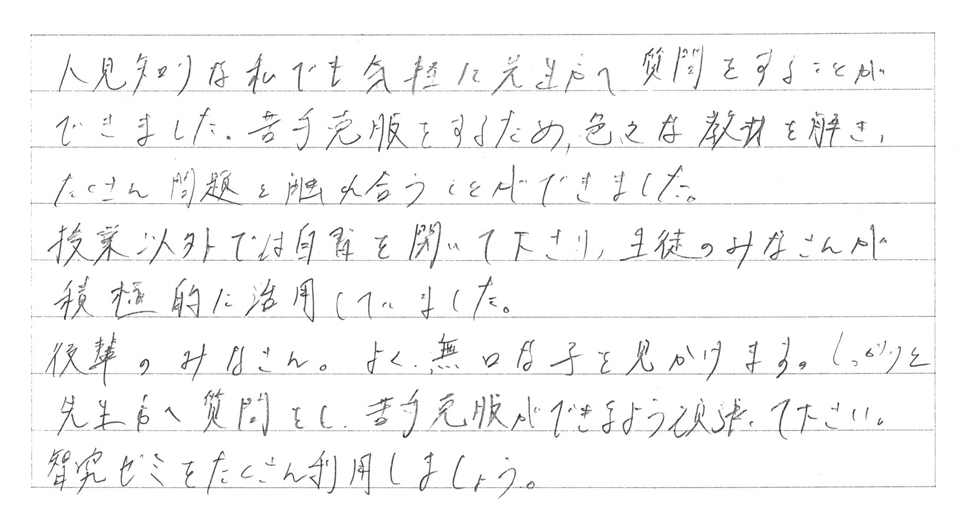 人見知りな私でも気軽に先生方へ質問をすることが
できました。苦手克服をするため、色々な教材を解き、
たくさん問題と触れ合うことができました。
授業以外では自習を開いて下さり、生徒のみなさんが
積極的に活用していました。
後輩のみなさん。よく、無口な子を見かけます。しっかりと
先生方へ質問をし、苦手克服ができるよう頑張って下さい。
智究ゼミをたくさん利用しましょう。